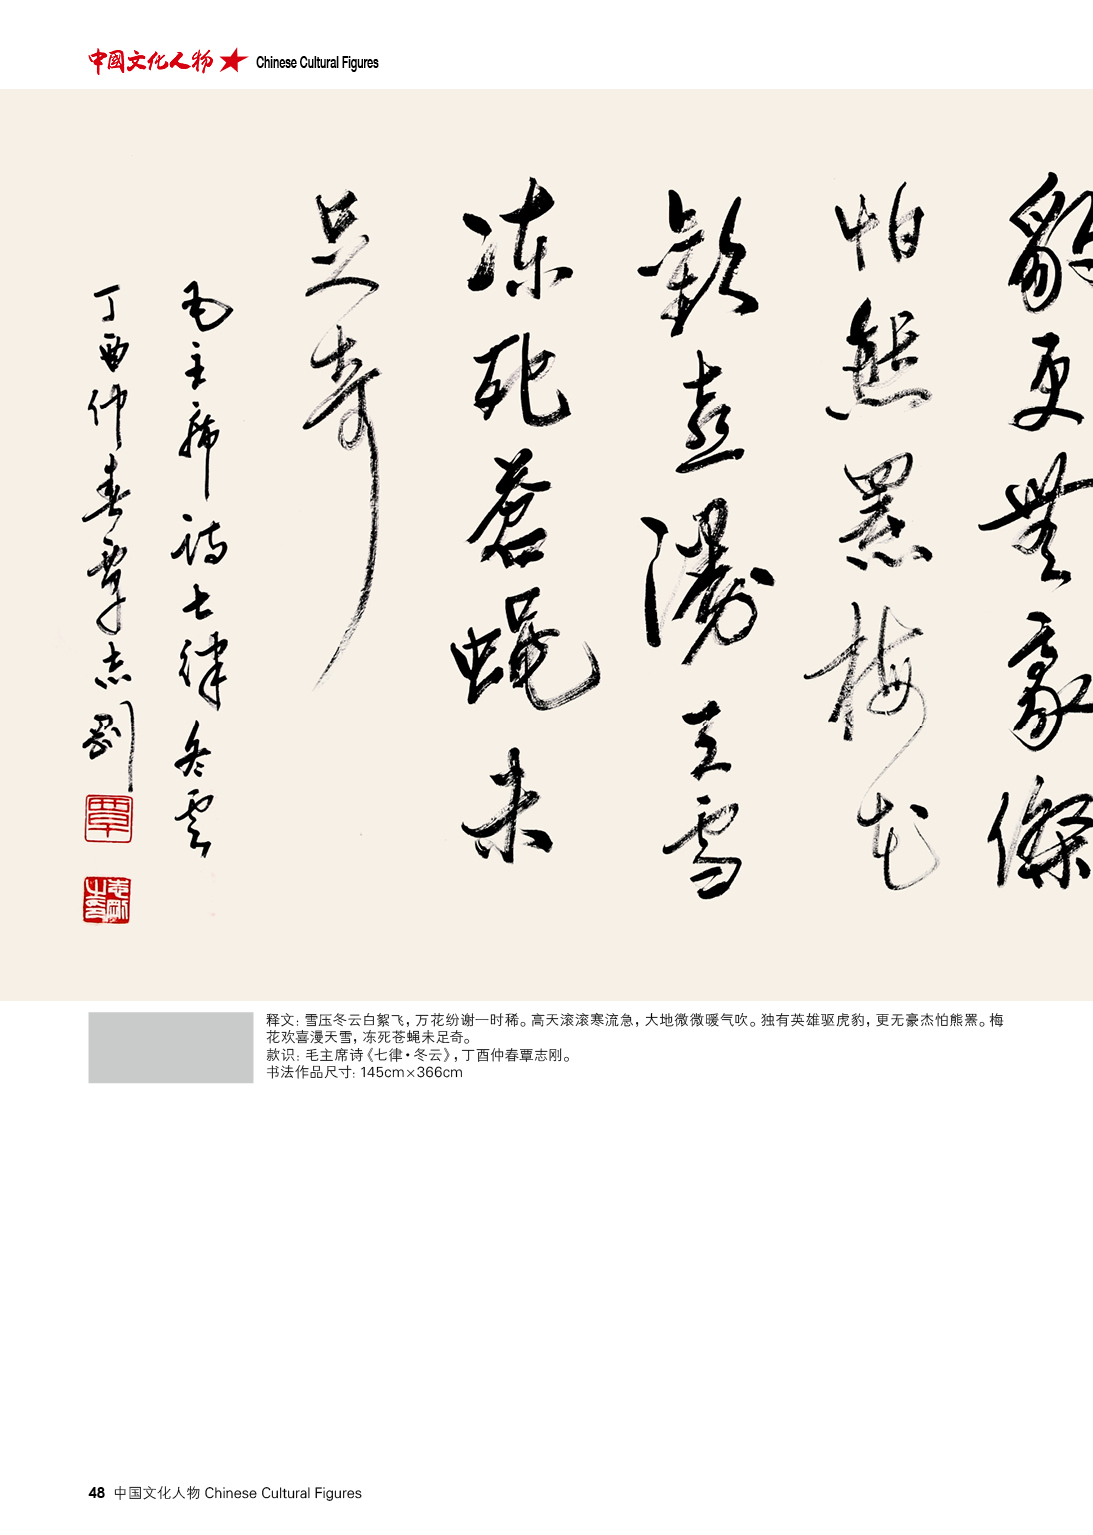 中國文化人物 Chinese Cultural Figures
豹更無豪傑
怕熊罴梅花
歡喜漫天雪
冻死蒼蝇未
足奇
毛主席诗七律冬雲
丁酉仲春覃志剛
覃
释文: 雪压冬云白絮飞, 万花纷谢一时稀。高天滚滚寒流急, 大地微微暖气吹。独有英雄驱虎豹, 更无豪杰怕熊罴。梅
花欢喜漫天雪, 冻死苍蝇未足奇。
款识: 毛主席诗《七律·冬云》, 丁酉仲春覃志刚。
书法作品尺寸: 145cm×366cm
48 中国文化人物 Chinese Cultural Figures